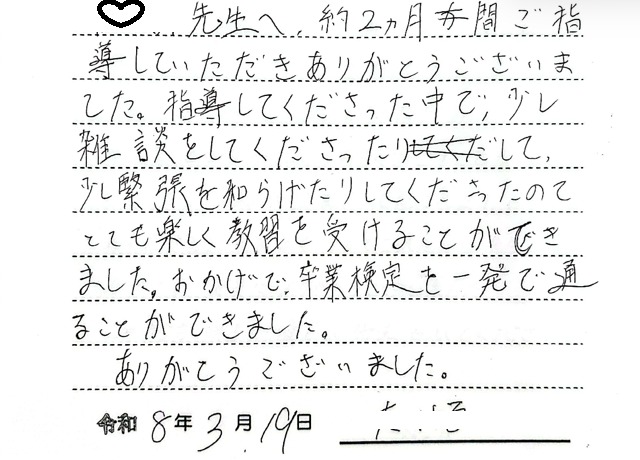 先生へ、約2ヵ月間ご指
導していただきありがとうございま
した。指導してくださった中で、少し
雑談をしてくださったりして、
少し緊張を和らげたりしてくださったので
とても楽しく教習を受けることができ
ました。おかげで、卒業検定を一発で通
ることができました。
ありがとうございました。
令和8年3月19日